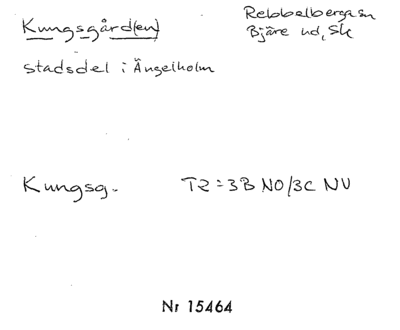 Kungsgård(en)
Rebbelberga sn
Bjäre hd, Sk
stadsdel i Ängelholm
Kungsg.
T2=3B NO/3C NV
Nr 15464